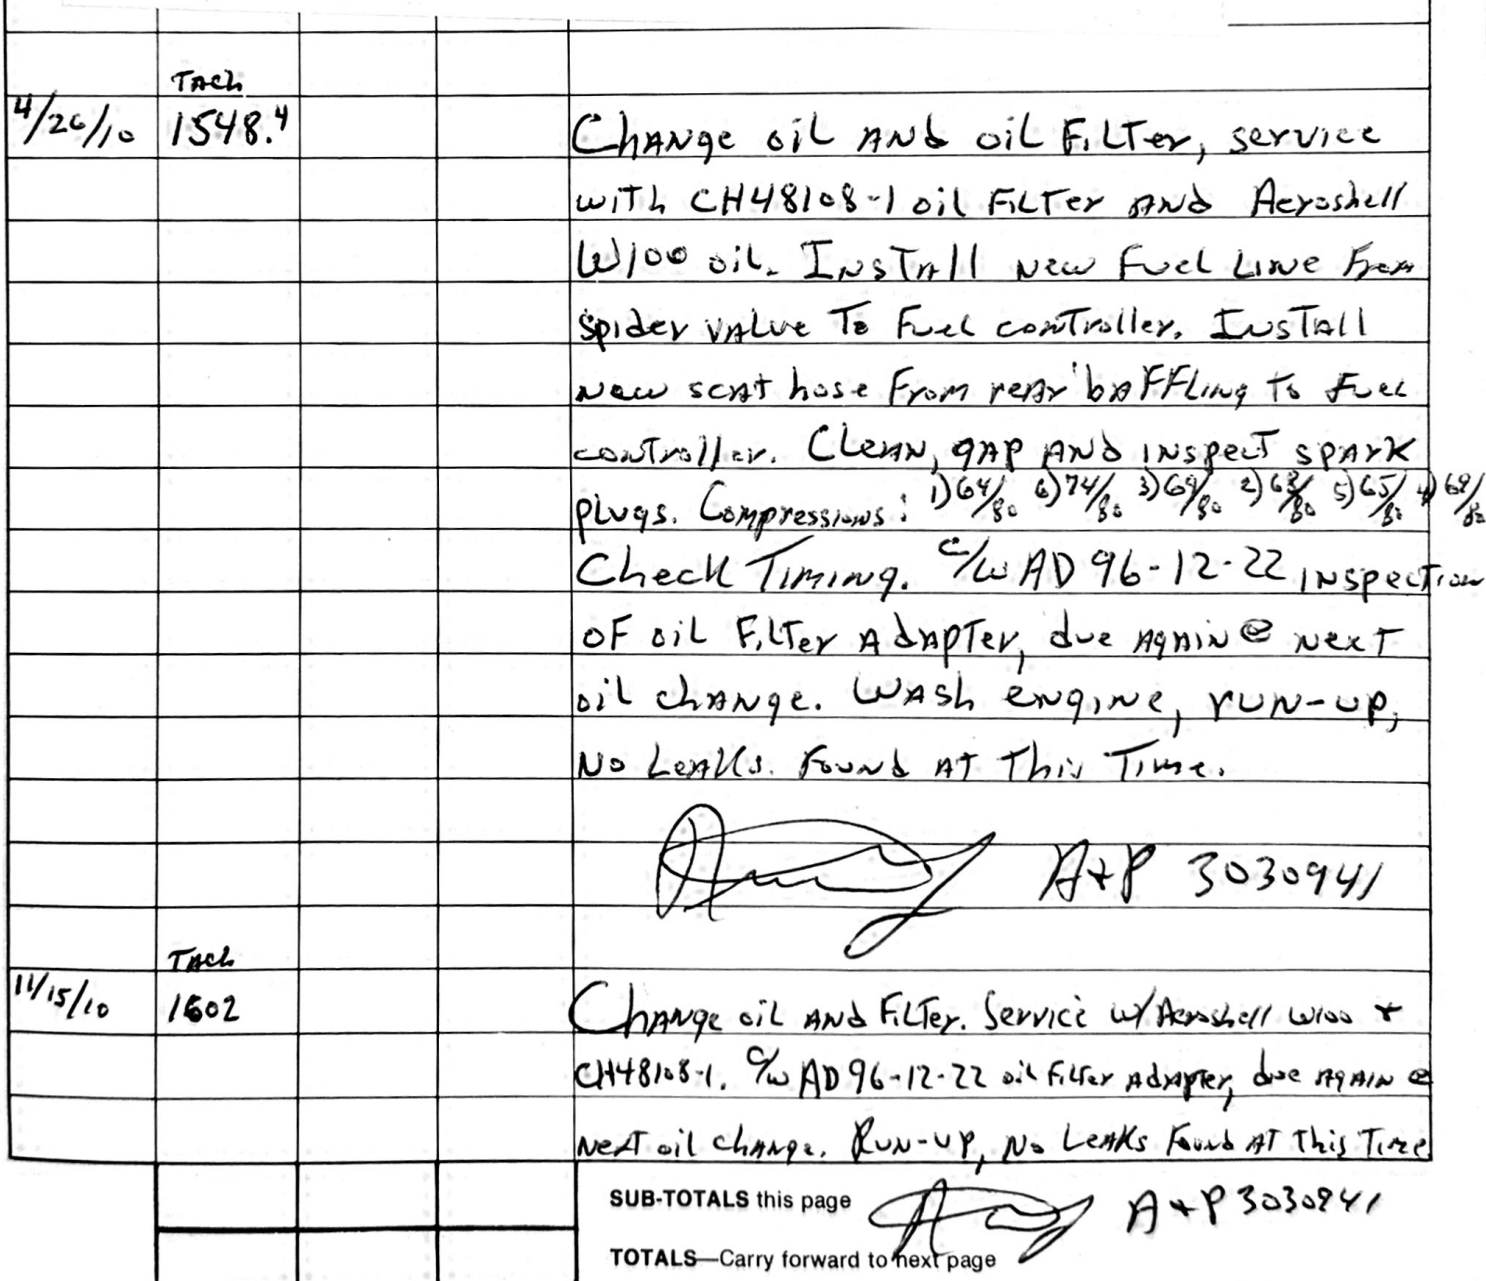 Tach
4/26/10 1548.4 Change oil and oil filter, service
with CH48108-1 oil filter and Aeroshell
W100 oil. Install new fuel line from
spider valve to fuel controller. Install
new scat hose from rear baffling to fuel
controller. Clean, gap and inspect spark
plugs. Compressions: 1) 64/80 6) 74/80 3) 69/80 2) 68/80 5) 65/80 4) 68/80
Check Timing. C/W AD 96-12-22 inspection
of oil filter adapter, due again @ next
oil change. Wash engine, run-up,
no leaks found at this time.
A+P 3030941
Tach
11/15/10 1602 Change oil and filter. Service w/ Aeroshell W100 +
CH48108-1. C/W AD 96-12-22 oil filter adapter, due again @
next oil change. Run-up, no leaks found at this time
SUB-TOTALS this page A+P 3030941
TOTALS—Carry forward to next page